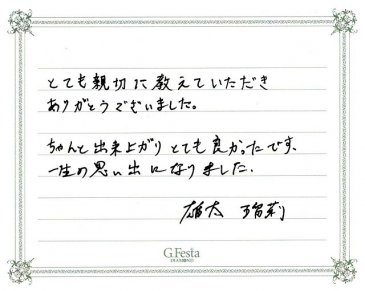 とても親切に教えていただき
ありがとうございました。
ちゃんと出来上がりとても良かったです、
一生の思い出になりました.
雄太 瑠莉
G.Festa
DIAMOND